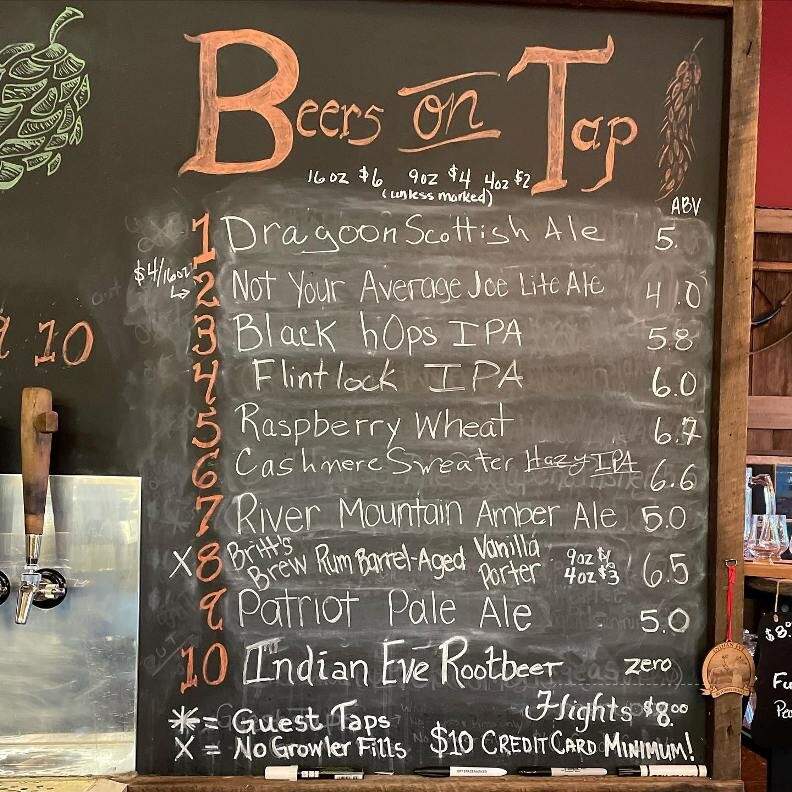 Beers on Tap
16oz $6 9oz $4 4oz $2
(unless marked)
ABV
1 Dragoon Scottish Ale 5.
$4/16oz
2 Not Your Average Joe Lite Ale 4.0
3 Black hOps IPA 5.8
4 Flintlock IPA 6.0
10
5 Raspberry Wheat
6 Cashmere Sweater Hazy IPA 6.6
7 River Mountain Amber Ale 5.0
X 8 Britt's Brew Rum Barrel-Aged Vanilla Porter 9oz 4oz $3 6.5
9 Patriot Pale Ale 5.0
10 Indian Eve Rootbeer zero
Flights $8.00
* = Guest Taps
X = No Growler Fills $10 CREDIT CARD MINIMUM!
$8.